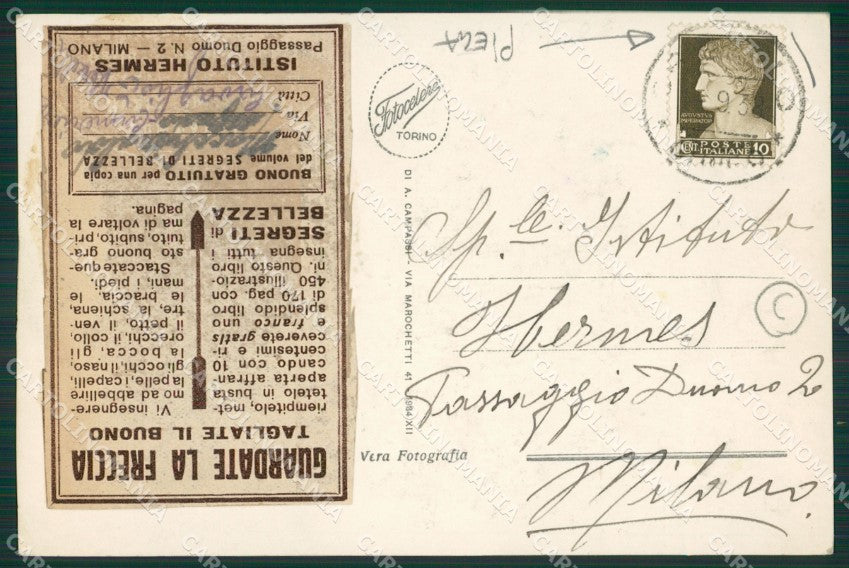 GUARDATE LA FRECCIA
TAGLIATE IL BUONO
riempitelo, met-
tetelo in busta
aperta affran-
cando con 10
centesimi e ri-
ceverete gratis
e franco uno
splendido libro
di 170 pag. con
450 illustrazio-
ni. Questo libro
insegna tutti i
SEGRETI di
BELLEZZA
Vi insegnere-
mo ad abbellire
la pelle, i capelli,
gli occhi, il naso,
la bocca, gli
orecchi, il collo,
il petto, il ven-
tre, la schiena,
le braccia, le
mani, i piedi.
Staccateque-
sto buono gra-
tuito, subito, pri-
ma di voltare la
pagina.
BUONO GRATUITO per una copia
del volume SEGRETI DI BELLEZZA
Nome
Via
Città
ISTITUTO HERMES
Passaggio Duomo N. 2 — MILANO
PIEGA
Fotocelere
TORINO
DI A. CAMPASSI - VIA MAROCHETTI 41 - 1934-XII
Vera Fotografia
AVGVSTVS
IMPERATOR
POSTE
CENT. ITALIANE 10
C
Sp. le Istituto
Hermes
Passaggio Duomo 2
Milano
CARTOLINOMANIA